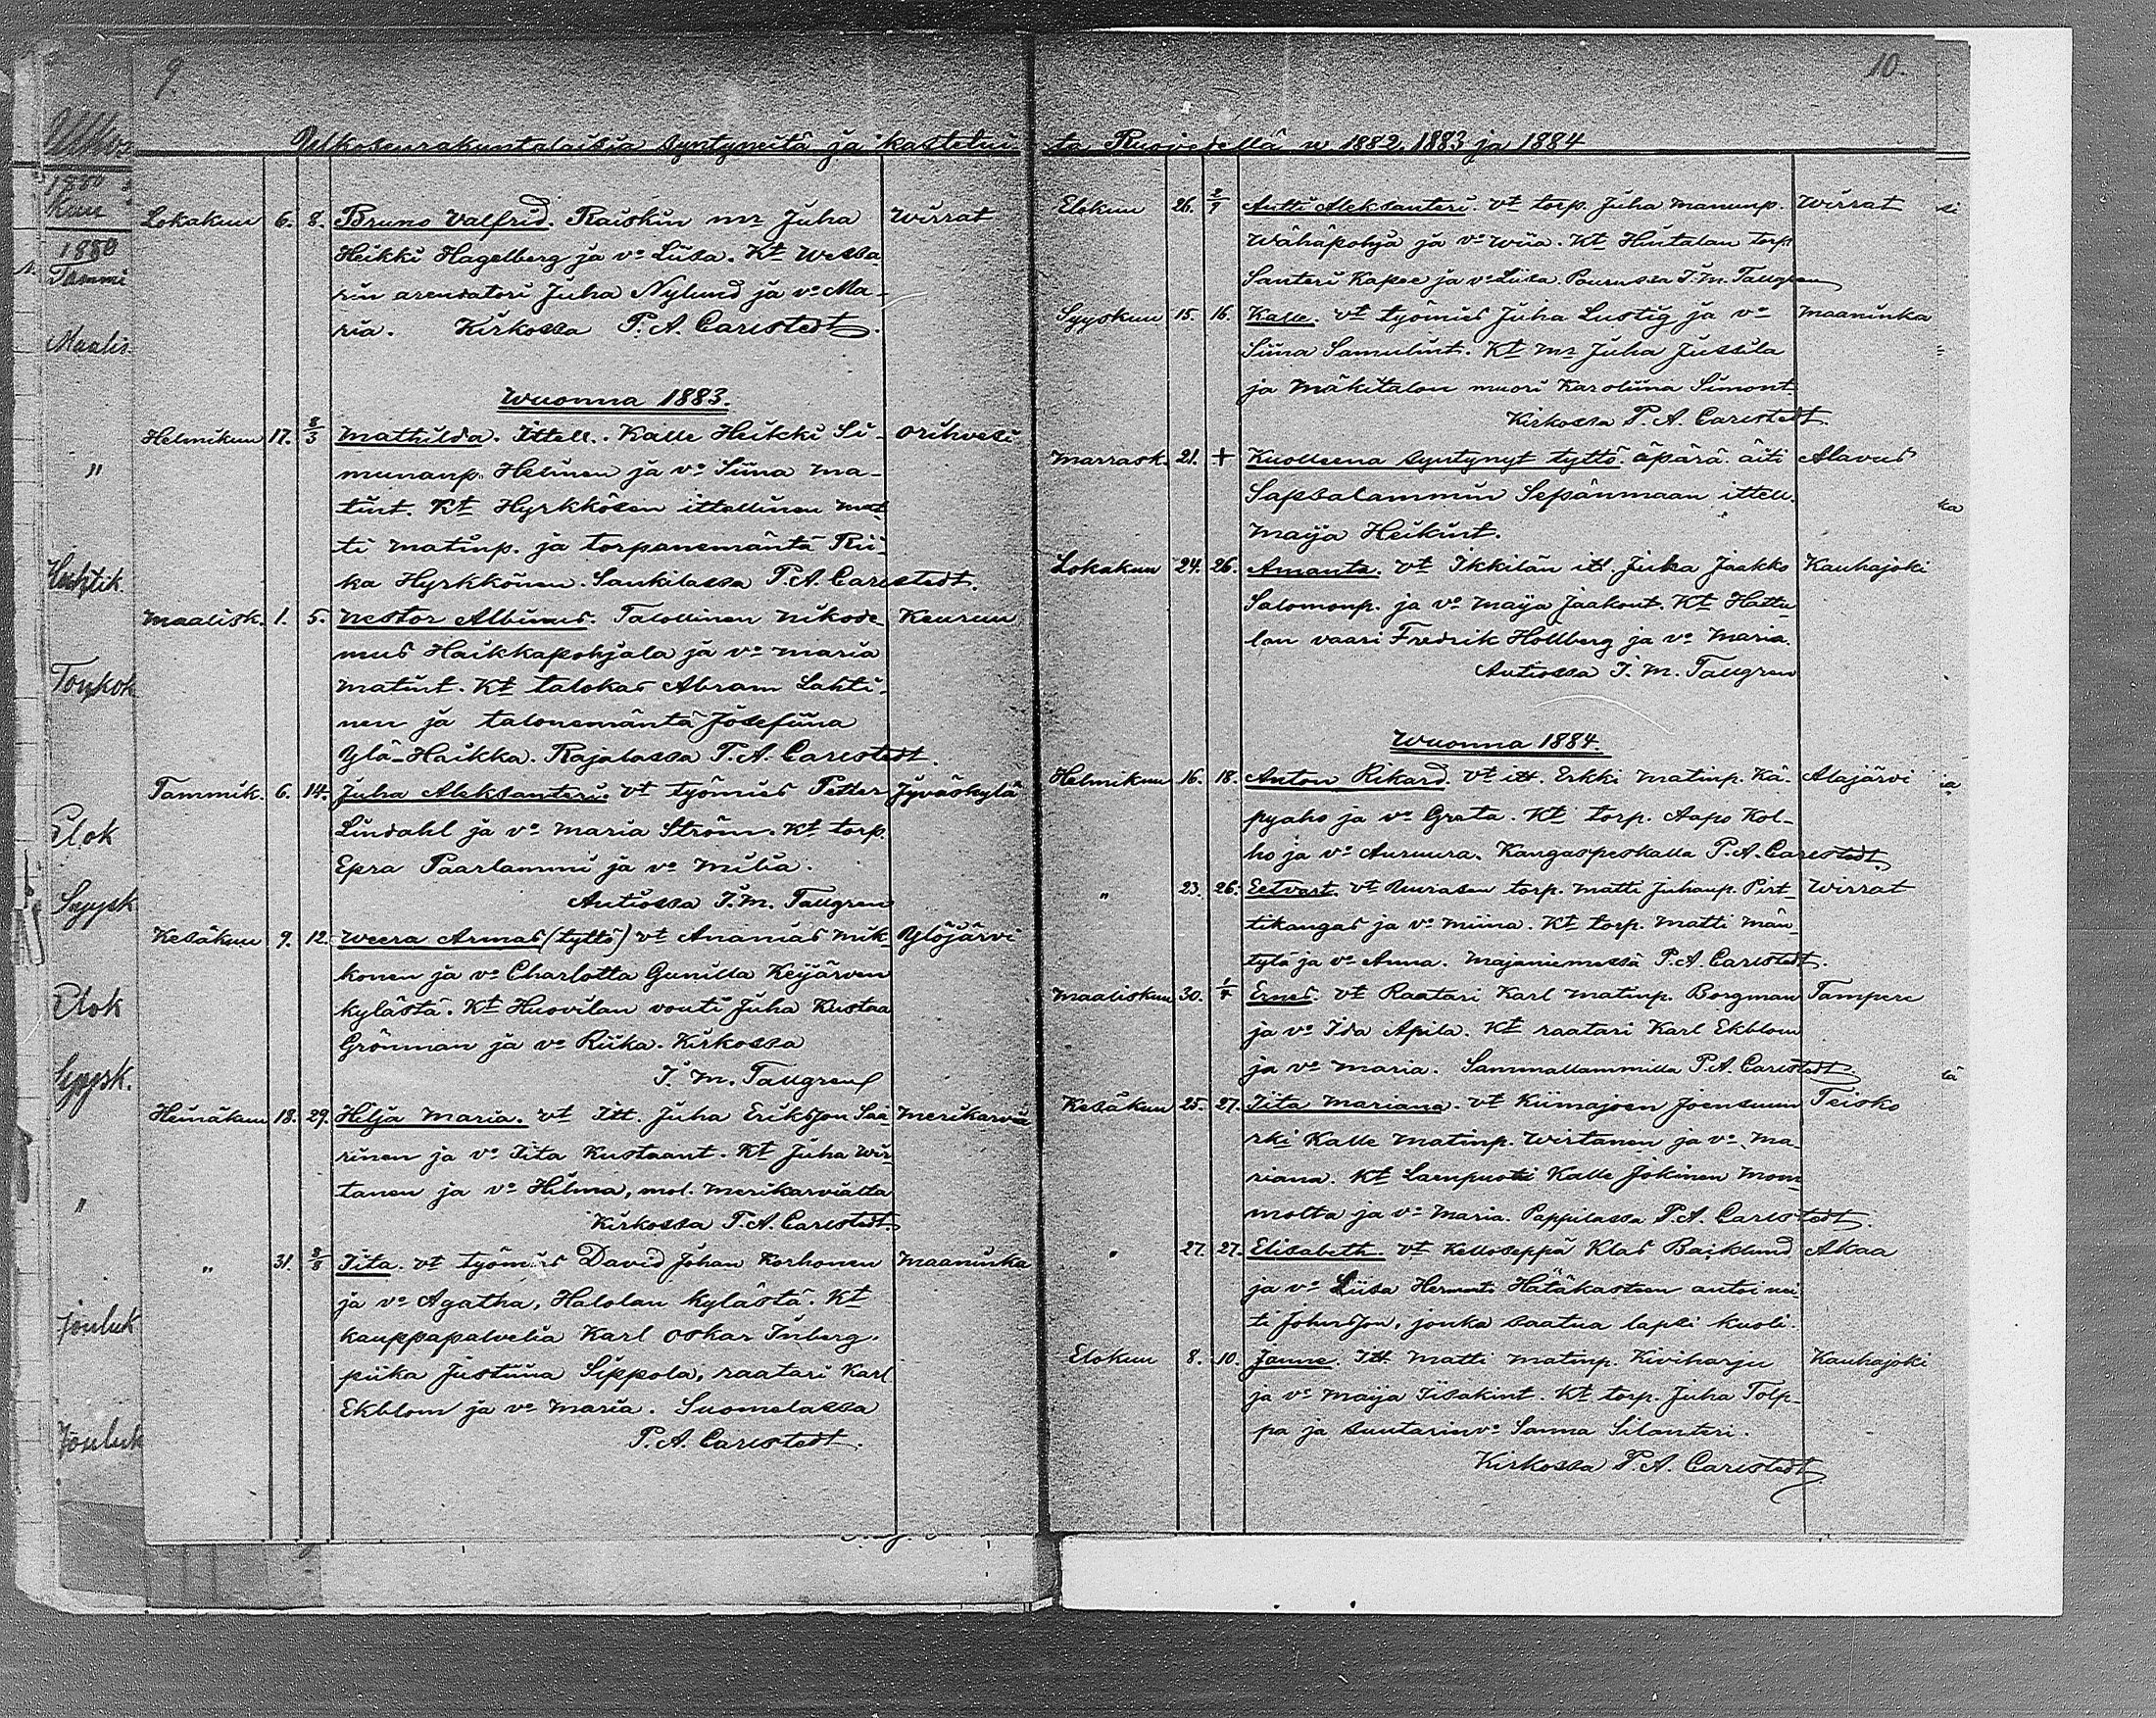 9.
10.
Ulkoseurakuntalaisia syntyneitä ja kastetui-
ta Ruovedellä w. 1882, 1883 ja 1884
Lokakuu 6. 8. Bruno Valfrid. Raiskin mr Juha Wirrat
Heikki Hagelberg ja vo Liisa. Kt Wessa-
rin arendatori Juha Nylund ja vo Ma-
ria. Kirkossa P. A. Carlstedt.
Wuonna 1883.
Helmikuu 17. 8/3 Mathilda. Ittell. Kalle Heikki Si- Orihvesi
munanp. Helinen ja vo Siina Ma-
tint. Kt Hyrkkösen ittellinen Mat-
ti Matinp. ja torpanemäntä Rii-
ka Hyrkkönen. Laukilassa P. A. Carlstedt.
Maalisk. 1. 5. Nestor Albinus. Talollinen Nikode- Keuruu
mus Haikkapohjala ja vo Maria
Matint. Kt talokas Abram Lahti-
nen ja talonemäntä Josefiina
Ylä-Haikka. Rajalassa P. A. Carlstedt.
Tammik. 6. 14. Juha Aleksanteri. Vt työmies Petter Jyväskylä
Lindahl ja vo Maria Ström. Kt torp.
Epra Paarlammi ja vo Milia.
Autiossa J. M. Tallgren
Kesäkuu 9. 12. Weera Armas (tyttö) vt Ananias Mik- Ylöjärvi
konen ja vo Charlotta Gunilla Keijärven
kylästä. Kt Huovilan vouti Juha Kustaa
Grönman ja vo Riika. Kirkossa
J. M. Tallgren
Heinäkuu 18. 29. Hilja Maria. Vt Itt. Juha Eriksson Saa- Merikarvia
rinen ja vo Iita Kustaant. Kt Juha Wir-
tanen ja vo Hilma, mol. Merikarvialta
Kirkossa P. A. Carlstedt.
„ 31. 8/8 Iita. Vt työmies David Johan Korhonen Maaninka
ja vo Agatha, Halolan kylästä. Kt
kauppapalvelia Karl Oskar Inberg.
piika Justiina Sippola, raatari Karl
Ekblom ja vo Maria. Suomelassa
P. A. Carlstedt.
Elokuu 26. 2/9 Antti Aleksanteri. Vt torp. Juha Manunp. Wirrat
Wähäpohja ja vo Wiia. Kt Hintalan torp.
Santeri Kapee ja vo Liisa. Pourussa J. M. Tallgren
Syyskuu 15. 16. Kalle. Vt työmies Juha Lustig ja vo Maaninka
Siina Samulint. Kt mr Juha Jussila
ja Mäkitalon muori Karoliina Simont.
Kirkossa P. A. Carlstedt.
Marrask. 21. + Kuolleena syntynyt tyttö. äpärä. äiti Alavus
Sapsalammin Sepänmaan ittell.
Maija Heikint.
Lokakuu 24. 26. Amanta. Vt Ikkilän itt. Juha Jaakko Kauhajoki
Salomonp. ja vo Maija Jaakont. Kt Hattu-
lan vaari Fredrik Hollberg ja vo Maria.
Autiossa J. M. Tallgren
Wuonna 1884.
Helmikuu 16. 18. Anton Rikard. Vt itt. Erkki Matinp. Kä- Alajärvi
pyaho ja vo Greta. Kt torp. Aapo Kol-
ho ja vo Auruura. Kangaspeskalla P. A. Carlstedt
„ 23. 26. Eetvart. Vt Uurasen torp. Matti Juhanp. Pirt- Wirrat
tikangas ja vo Miina. Kt torp. Matti Män-
tylä ja vo Anna. Majaniemessä P. A. Carlstedt.
Maaliskuu 30. 1/4 Ernes. Vt Raatari Karl Matinp. Borgman Tampere
ja vo Ida Apila. Kt raatari Karl Ekblom
ja vo Maria. Sammallammilla P. A. Carlstedt.
Kesäkuu 25. 27. Iita Mariana. Vt Kiimajoen Joensuun Teisko
rki Kalle Matinp. Wirtanen ja vo Ma-
riana. Kt Lampuoti Kalle Jokinen Mom-
molta ja vo Maria. Pappilassa P. A. Carlstedt.
„ 27. 27. Elisabeth. Vt Kelloseppä Klas Backlund Akaa
ja vo Liisa Hermant. Hätäkasteen antoi nei-
ti Johnsson, jonka saatua lapsi kuoli.
Elokuu 8. 10. Janne. Itt. Matti Matinp. Kiviharju Kauhajoki
ja vo Maija Iisakint. Kt torp. Juha Tolp-
pa ja suutarinvo Sanna Silanteri.
Kirkossa P. A. Carlstedt.
1880
Kuu
1880
Tammi
Maalis
„
Huhtik.
Toukok
Elok
Syysk
Elok
Syysk.
„
Jouluk
Jouluk